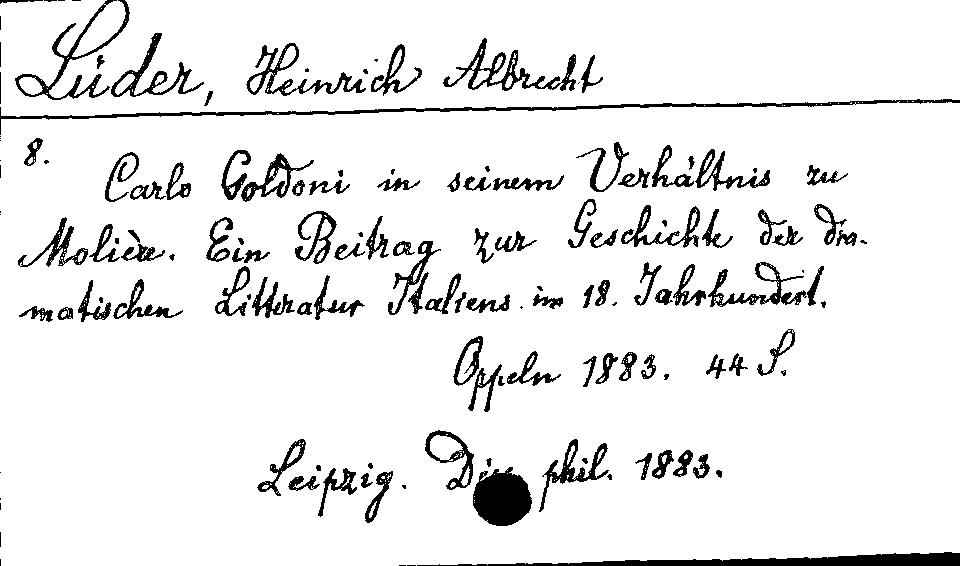 Lüder, Heinrich Albrecht
8.
Carlo Goldoni in seinem Verhältnis zu
Molière. Ein Beitrag zur Geschichte der dra-
matischen Litteratur Italiens im 18. Jahrhundert.
Oppeln 1883. 44 S.
Leipzig. Diss. phil. 1883.